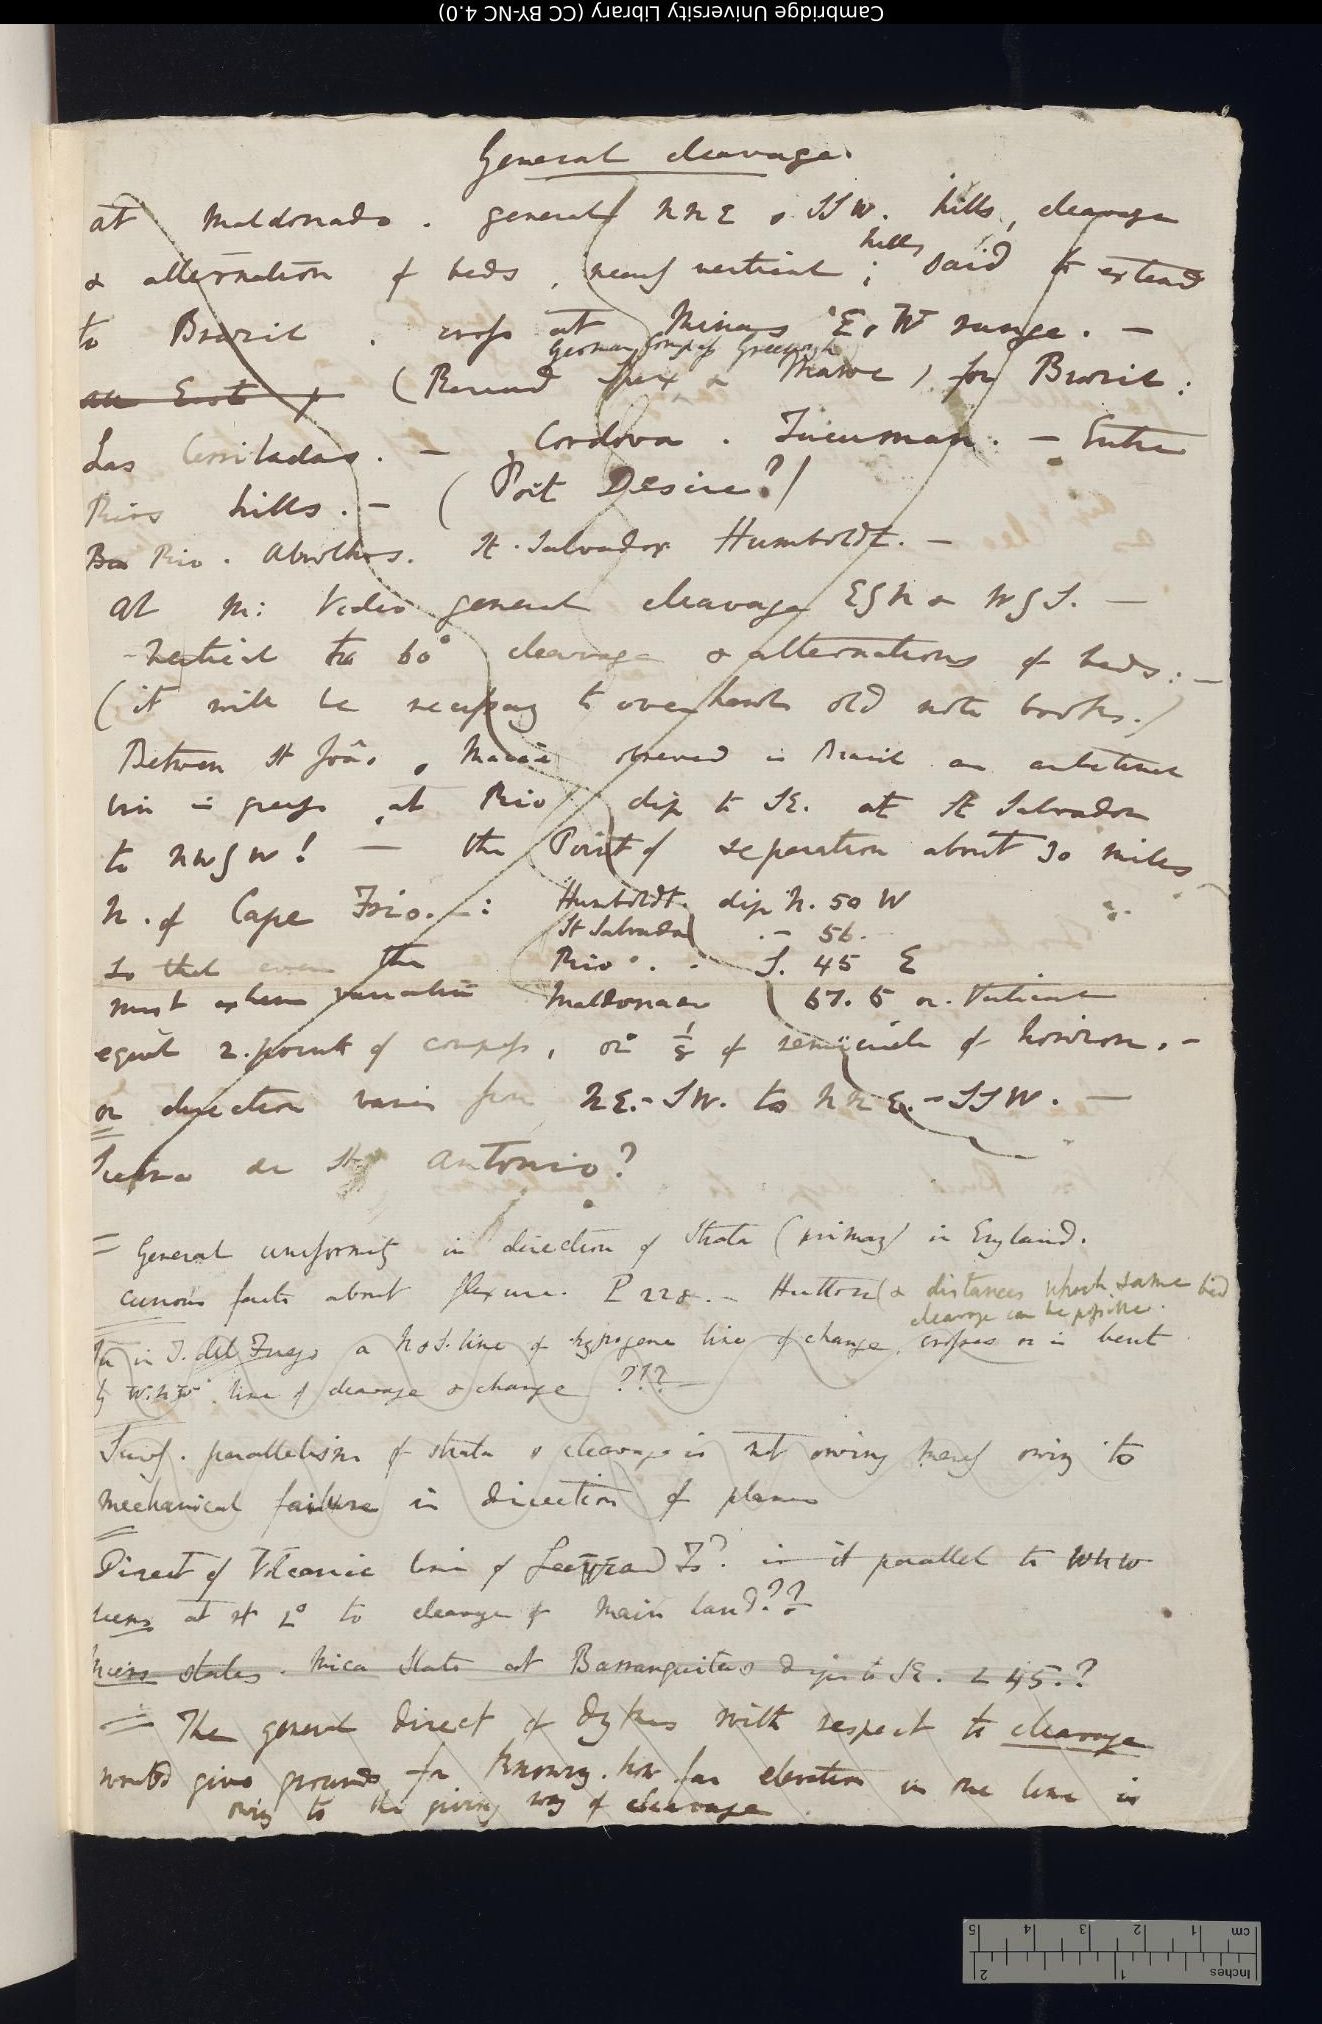 Cambridge University Library (CC BY-NC 4.0)
General cleavage.
at Maldonado. general NNE & SSW. hills, cleavage
& alternation of beds, nearly vertical; hills said to extend
to Brazil. cross at Minas E & W range. —
(Read Spix & Mawe) for Brazil:
German Compass Greenough
Las Cerrilladas. — Cordova. Tucuman. — Entre
Rios hills. — (Port Desire?)
Rio. Abrolhos. St. Salvador Humboldt. —
At M: Video general cleavage E by N & W by S. —
Vertical to 60° cleavage & alternations of beds: —
(it will be necessary to overhawl old note books.)
Between St João & Macaè observed in Brazil an anticlinal
line in gneiss, at Rio dip to SE. at St Salvador
to NW by W! — the Point of separation about 30 miles
N. of Cape Frio. —: Humboldt. dip N. 50 W
St Salvador — 56.
So that even the Rio . . S. 45 E
must when variation Maldonado 67.5 or. Vertical
equal 2. points of compass, or 1/8 of semicircle of horizon. —
or direction varies from NE. - SW. to NNE. - SSW. —
Sierra de St Antonio?
= General uniformity in direction of Strata (primary) in England.
curious facts about flexure. P 228. — Hutton (& distances which same bed
cleavage can be possible.
in T. del Fuego a N & S. line of hypogene line of change, crosses or is bent
by W.N.W. line of cleavage & change ??? —
Surf. parallelism of strata & cleavage is not owing merely owing to
mechanical failure in direction of planes
Direct of Volcanic line of is it parallel to WNW
at St to cleavage of main land??
slates. Mica Slate at Barranquitas dips to SE. ∠ 45.?
= The general direct of dykes with respect to cleavage
would give grounds for knowing how far elevation in one line is
owing to the giving way of cleavage.
5 4 3 2 1 cm
2 1 Inches